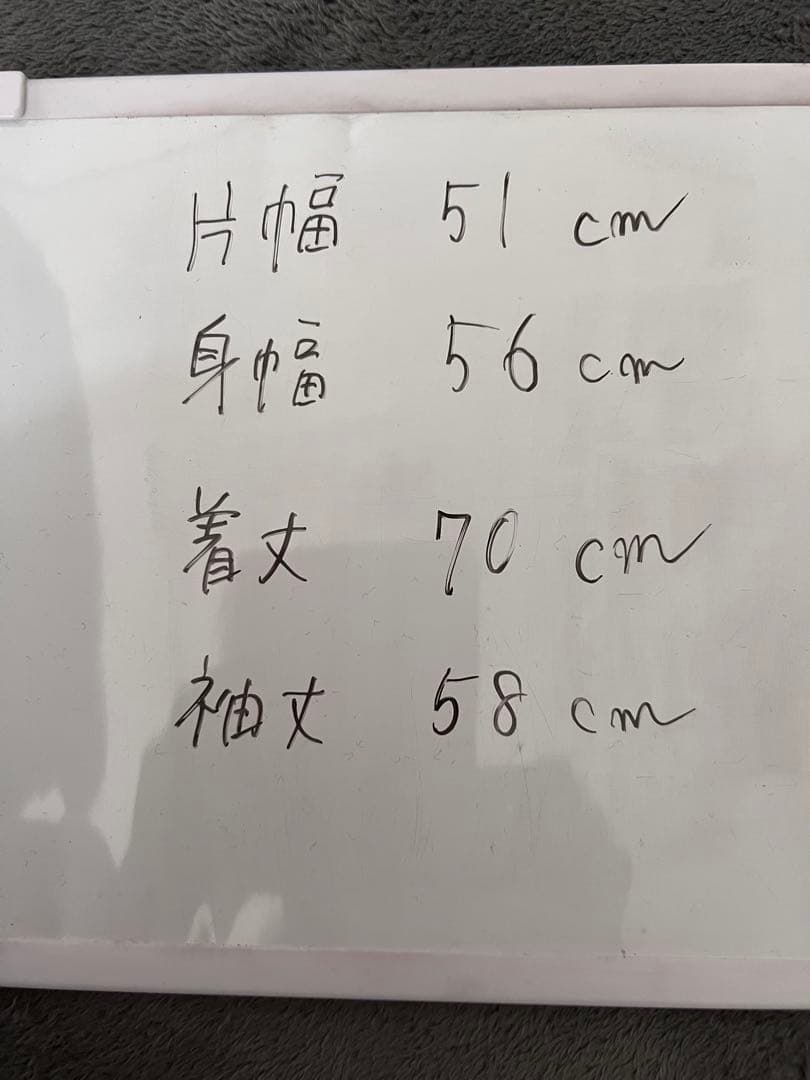 片幅 51 cm
身幅 56 cm
着丈 70 cm
袖丈 58 cm